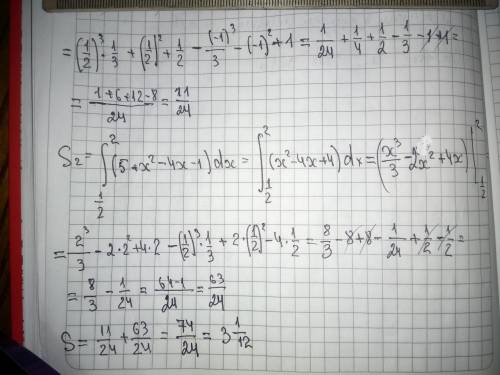 = (1/2)³·1/3 + (1/2)² + 1/2 - (-1)³/3 - (-1)² + 1 = 1/24 + 1/4 + 1/2 - 1/3 - 1 + 1 =
= (1+6+12-8)/24 = 11/24
S₂ = ∫_{1/2}^{2} (5+x²-4x-1)dx = ∫_{1/2}^{2} (x²-4x+4)dx = (x³/3 - 2x² + 4x)|_{1/2}^{2}
= 2³/3 - 2·2² + 4·2 - (1/2)³·1/3 + 2·(1/2)² - 4·1/2 = 8/3 - 8 + 8 - 1/24 + 1/2 - 1/2 =
= 8/3 - 1/24 = (64-1)/24 = 63/24
S = 11/24 + 63/24 = 74/24 = 3 1/12